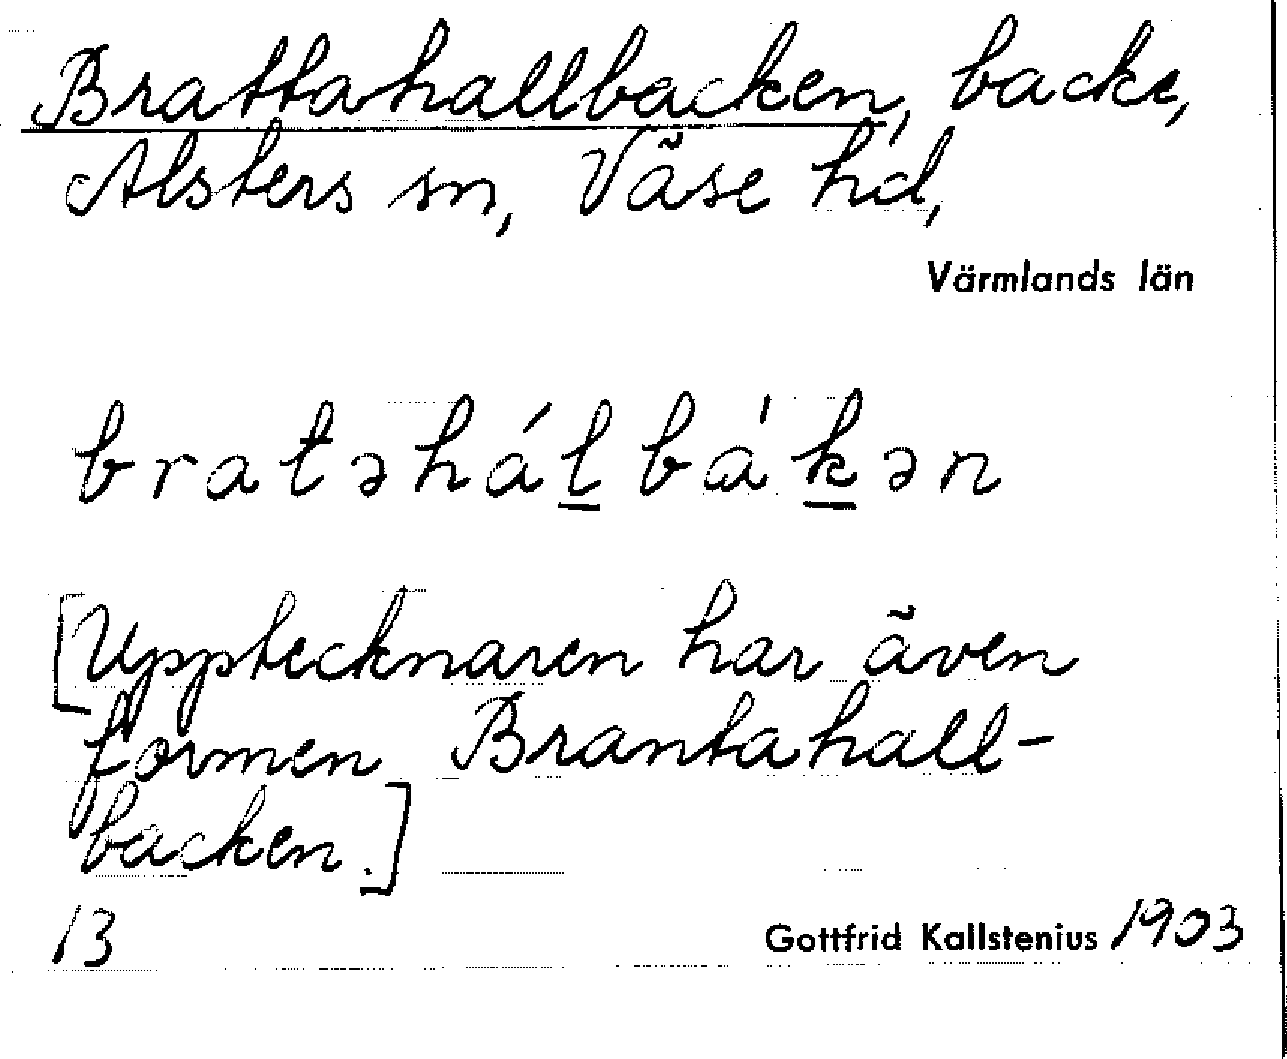 Brattahallbacken, backe,
Alsters sn, Väse hd,
Värmlands län
bratəhál̲bá'k̲ən
[Upptecknaren har även
formen Brantahall-
backen.]
13
Gottfrid Kallstenius 1903